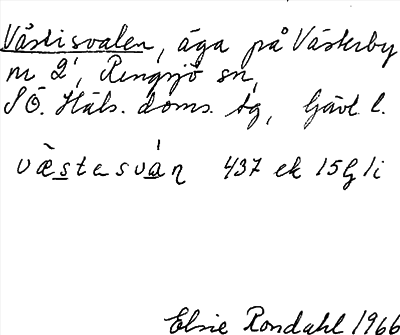 Västisvalen, äga på Västerby
nr 2, Rengsjö sn,
SÖ. Häls. doms. tg, Gävl. l.
væ̀stesván 437 ek 15G1i
Elsie Rondahl 1966